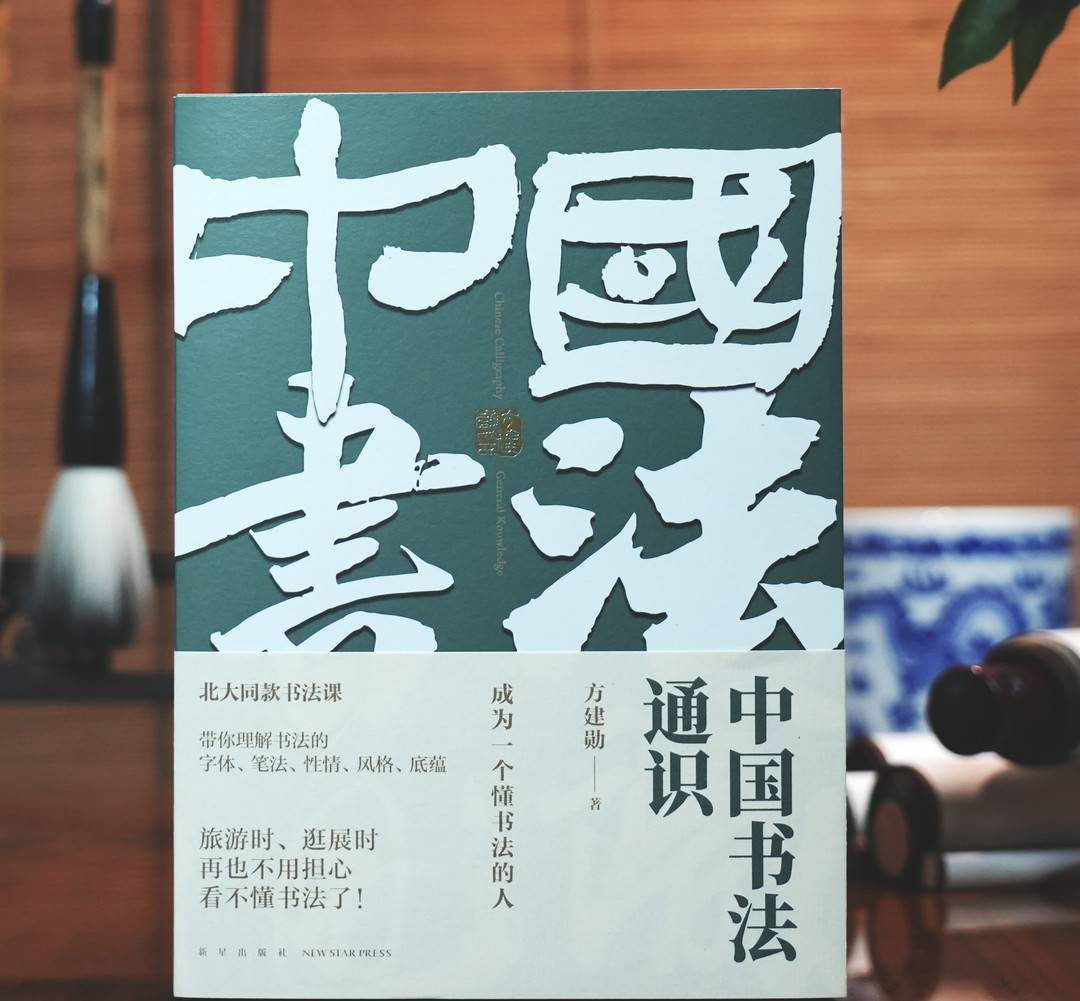 中國
書法
Chinese Calligraphy
General Knowledge
中国书法
通识
方建勋——著
成为一个懂书法的人
北大同款书法课
带你理解书法的
字体、笔法、性情、风格、底蕴
旅游时、逛展时
再也不用担心
看不懂书法了！
新星出版社 NEW STAR PRESS